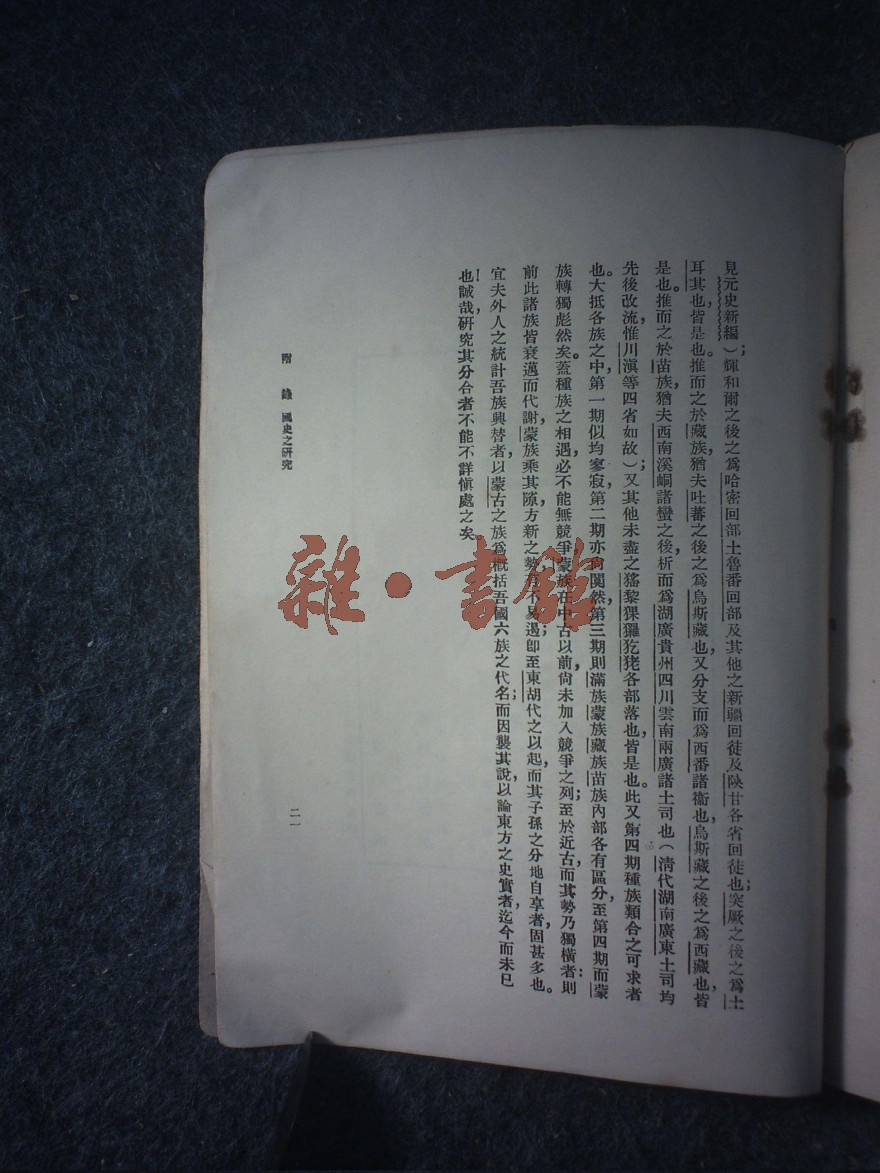 見元史新編)；輝和爾之後之爲哈密回部土魯番回部及其他之新疆回徒及陝甘各省回徒也；突厥之後之爲土
耳其也，皆是也。推而之於藏族，猶夫吐蕃之後之爲烏斯藏也，又分支而爲西番諸衞也，烏斯藏之後之爲西藏也，皆
是也。推而之於苗族，猶夫西南溪峒諸蠻之後，析而爲湖廣貴州四川雲南兩廣諸土司也(清代湖南廣東土司均
先後改流，惟川滇等四省如故)；又其他未盡之猺黎猓玀犵狫各部落也，皆是也。此又第四期種族類合之可求者
也。大抵各族之中，第一期似均寥寂，第二期亦尙闃然，第三期則滿族蒙族藏族苗族內部各有區分，至第四期而蒙
族轉獨彪然矣。蓋種族之相遇，必不能無競爭，蒙族在中古以前，尙未加入競爭之列；至於近古，而其勢乃獨橫者：則
前此諸族皆衰邁而代謝，蒙族乘其隙，方新之勢，不易遏；卽至東胡代之以起，而其子孫之分地自享者，固甚多也。
宜夫外人之統計吾族興替者，以蒙古之族爲槪括吾國六族之代名；而因襲其說，以論東方之史實者，迄今而未已
也！誠哉，硏究其分合者不能不詳愼處之矣。
附錄 國史之硏究
二一
雜·書館